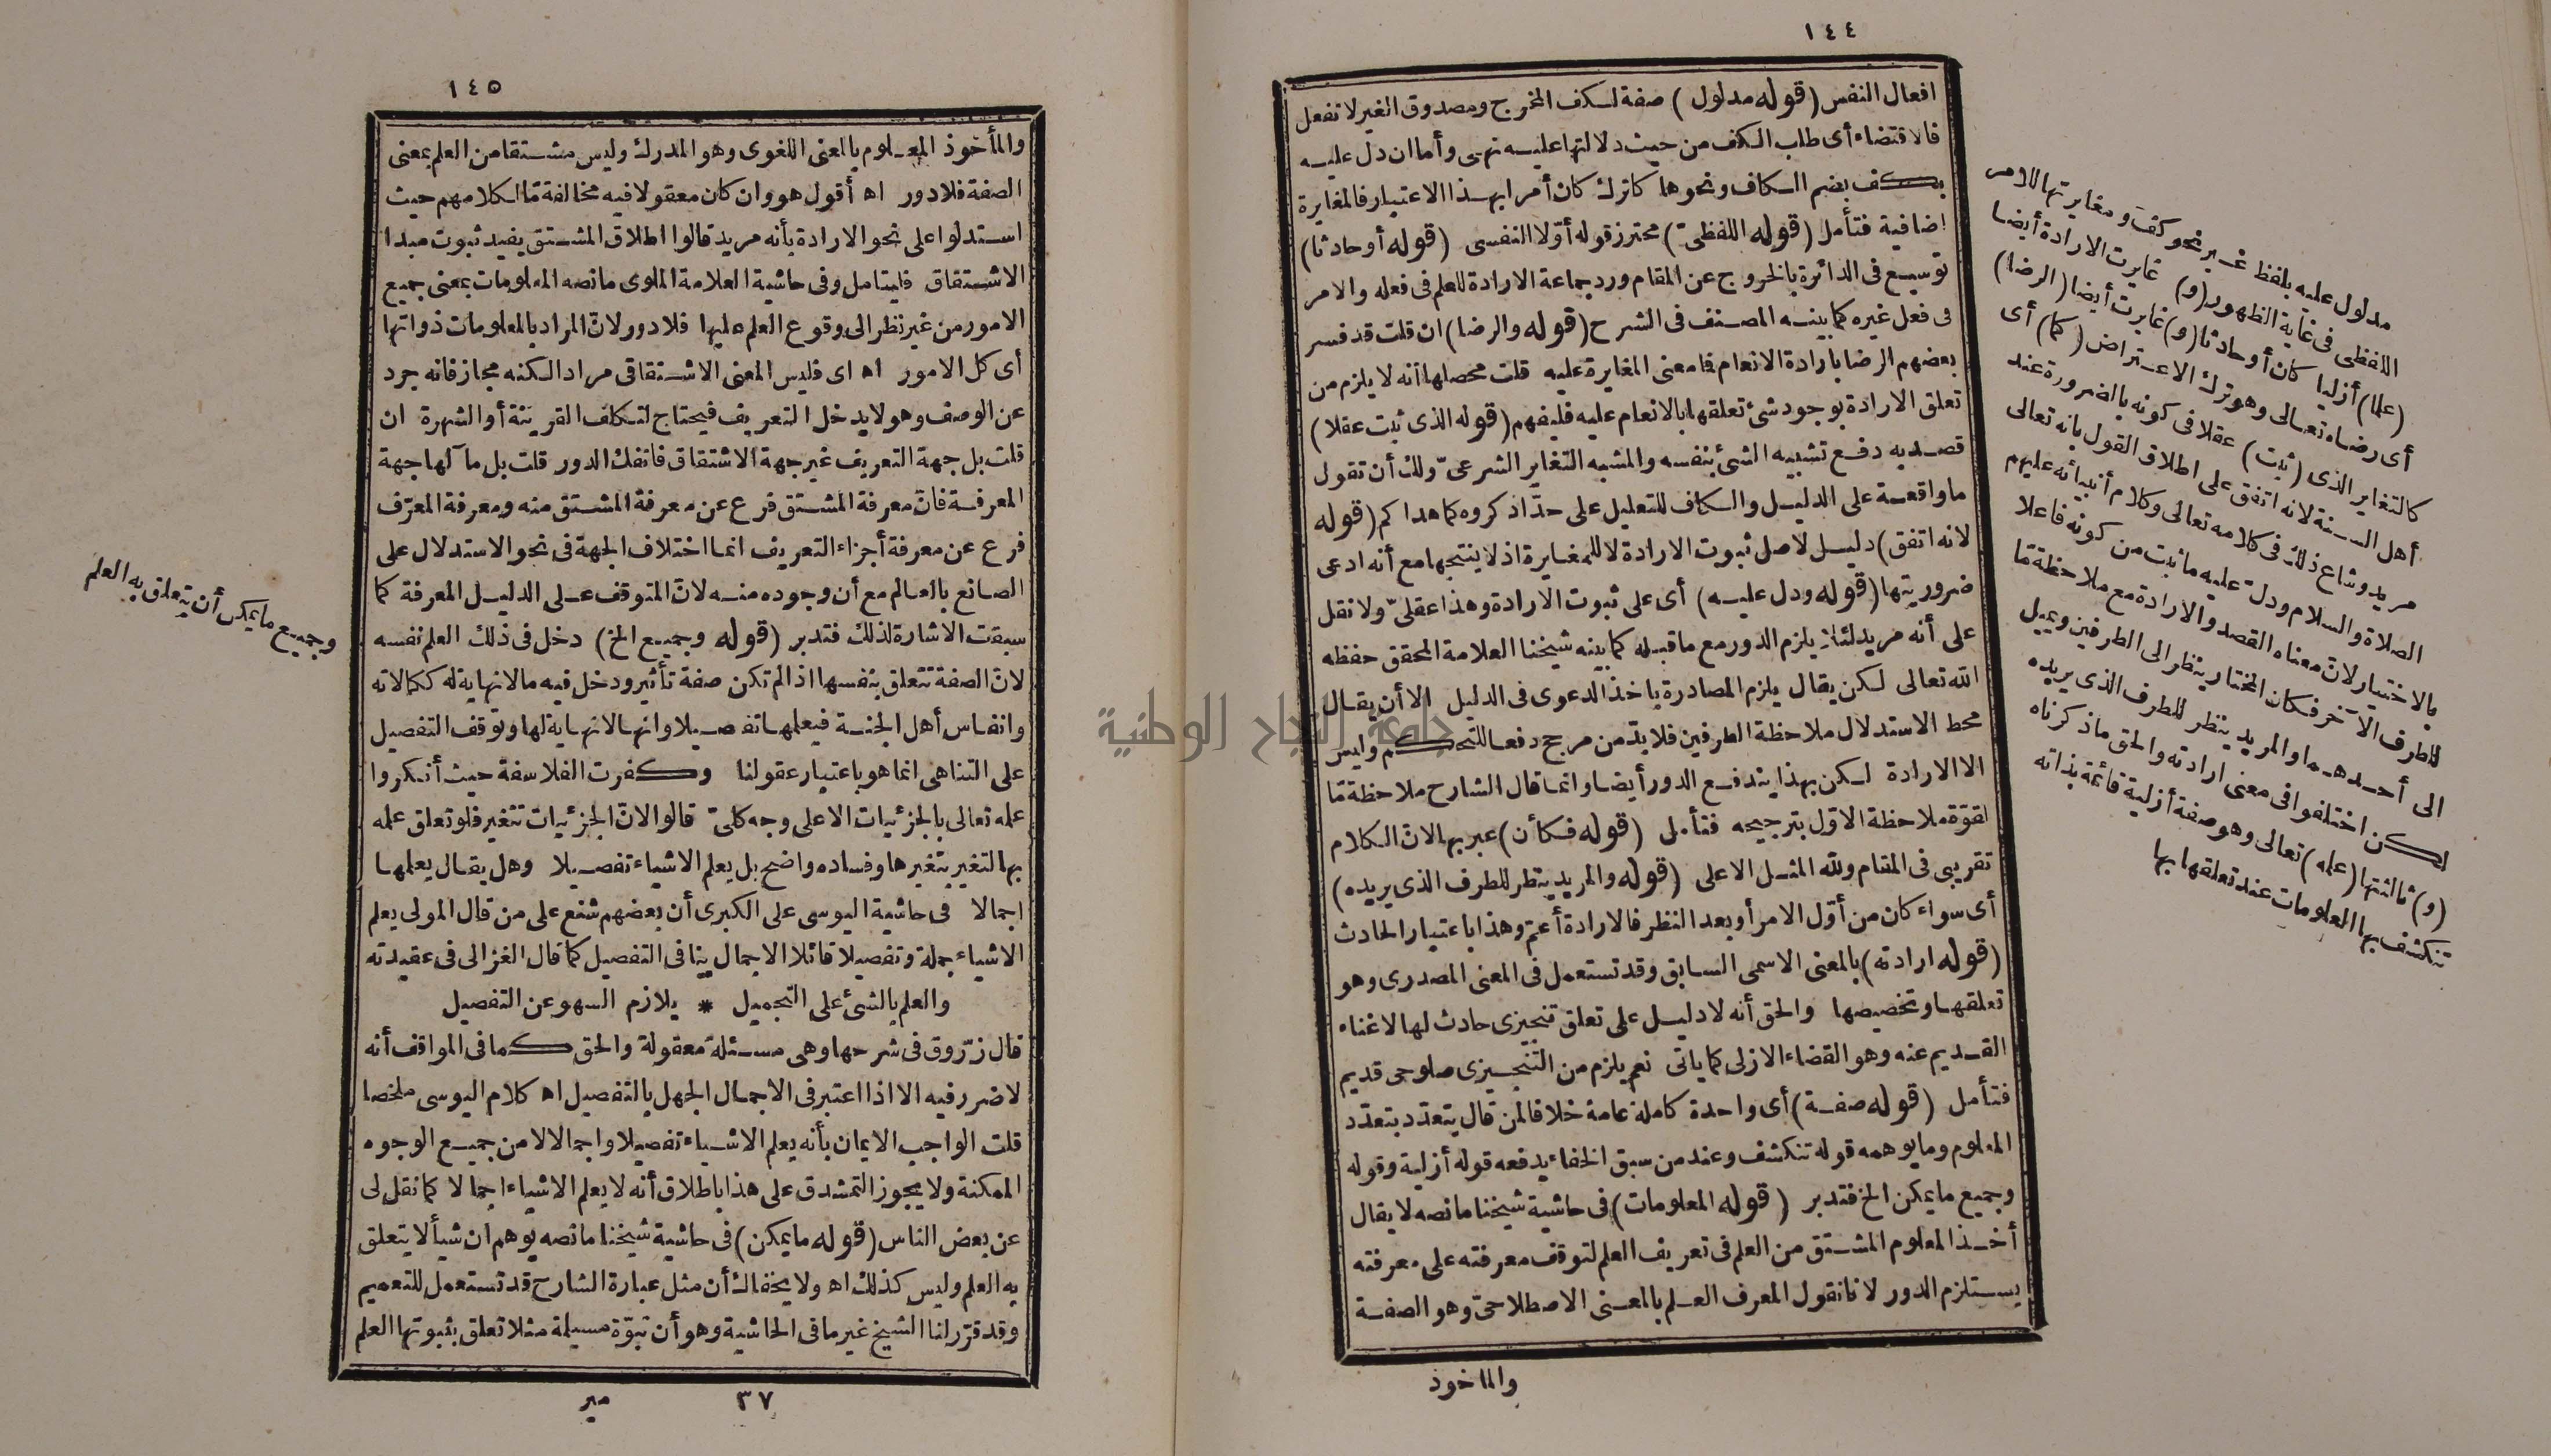 ١٤٤
افعال النفس (قوله مدلول) صفة لكف المخرج ومصدوق الغير لا تفعل
فالاقتضاء أى طلب الكف من حيث دلالتها عليه نهى وأما ان دل عليه
بكف بضم الكاف ونحوها كاترك كان أمرا بهذا الاعتبار فالمغايرة
اضافية فتأمل (قوله اللفظىّ) محترز قوله أوّلا النفسى (قوله أو حادثا)
توسيع فى الدائرة بالخروج عن المقام ورد بجماعة الارادة للعلم فى فعله والامر
فى فعل غيره كما بينه المصنف فى الشرح (قوله والرضا) ان قلت قد فسر
بعضهم الرضا بارادة الانعام فما معنى المغايرة عليه قلت محصلها أنه لا يلزم من
تعلق الارادة بوجود شئ تعلقها بالانعام عليه فليفهم (قوله الذى ثبت عقلا)
قصد به دفع تشبيه الشئ بنفسه والمشبه التغاير الشرعىّ ولك أن تقول
ما واقعة على الدليل والكاف للتعليل على حدّ اذكروه كما هداكم (قوله
لانه اتفق) دليل لاصل ثبوت الارادة لا للمغايرة اذ لا ينتجها مع أنه ادعى
ضروريتها (قوله ودل عليه) أى على ثبوت الارادة وهذا عقلىّ ولا نقل
على أنه مريد لئلا يلزم الدور مع ما قبله كما بينه شيخنا العلامة المحقق حفظه
الله تعالى لكن يقال يلزم المصادرة باخذ الدعوى فى الدليل الا أن يقال
محط الاستدلال ملاحظة الطرفين فلا بدّ من مرجح دفعا للتحكم وليس
الا الارادة لكن بهذا يندفع الدور أيضا وانما قال الشارح ملاحظة مّا
لقوّة ملاحظة الاوّل بترجيحه فتأمل (قوله فكأن) عبر بها لانّ الكلام
تقريبى فى المقام ولله المثل الاعلى (قوله والمريد ينظر للطرف الذى يريده)
أى سواء كان من أوّل الامر أو بعد النظر فالارادة أعمّ وهذا باعتبار الحادث
(قوله ارادته) بالمعنى الاسمى السابق وقد تستعمل فى المعنى المصدرى وهو
تعلقها وتخصيصها والحق أنه لا دليل على تعلق تنجيزى حادث لها لاغناء
القديم عنه وهو القضاء الازلى كما ياتى نعم يلزم من التنجيزى صلوحى قديم
فتأمل (قوله صفة) أى واحدة كاملة عامة خلافا لمن قال يتعدّد بتعدّد
المعلوم وما يوهمه قوله تنكشف وعند من سبق الخفاء يدفعه قوله أزلية وقوله
وجميع ما يمكن الخ فتدبر (قوله المعلومات) فى حاشية شيخنا ما نصه لا يقال
أخذ المعلوم المشتق من العلم فى تعريف العلم لتوقف معرفته على معرفته
يستلزم الدور لانا نقول المعرف العلم بالمعنى الاصطلاحىّ وهو الصفة
والماخوذ
مدلول عليه بلفظ غير نحو كف ومغايرتها للامر
اللفظى فى غاية الظهور (و) غايرت الارادة أيضا
(علما) أزليا كان أو حادثا (و) غايرت أيضا (الرضا)
أى رضاه تعالى وهو ترك الاعتراض (كما) أى
كالتغاير الذى (ثبت) عقلا فى كونه بالضرورة عند
أهل السنة لانه اتفق على اطلاق القول بانه تعالى
مريد وشاع ذلك فى كلامه تعالى وكلام أنبيائه عليهم
الصلاة والسلام ودلّ عليه ما ثبت من كونه فاعلا
بالاختيار لانّ معناه القصد والارادة مع ملاحظة مّا
للطرف الآخر فكان المختار ينظر الى الطرفين ويميل
الى أحدهما والمريد ينظر للطرف الذى يريده
لكن اختلفوا فى معنى ارادته والحق ما ذكرناه
(و) ثالثتها (علمه) تعالى وهو صفة أزلية قائمة بذاته
تنكشف بها المعلومات عند تعلقها بها
١٤٥
والمأخوذ المعلوم بالمعنى اللغوى وهو المدرك وليس مشتقا من العلم بمعنى
الصفة فلا دور اه أقول هو وان كان معقولا فيه مخالفة مّا لكلامهم حيث
استدلوا على نحو الارادة بأنه مريد قالوا اطلاق المشتق يفيد ثبوت مبدا
الاشتقاق فليتامل وفى حاشية العلامة الملوى ما نصه المعلومات بمعنى جميع
الامور من غير نظر الى وقوع العلم عليها فلا دور لانّ المراد بالمعلومات ذواتها
أى كل الامور اه اى فليس المعنى الاشتقاقى مراد الكنه مجاز فانه جرد
عن الوصف وهو لا يدخل التعريف فيحتاج لتكلف القرينة أو الشهرة ان
قلت بل جهة التعريف غير جهة الاشتقاق فانفك الدور قلت بل مآلها جهة
المعرفة فانّ معرفة المشتق فرع عن معرفة المشتق منه ومعرفة المعرّف
فرع عن معرفة أجزاء التعريف انما اختلاف الجهة فى نحو الاستدلال على
الصانع بالعالم مع أن وجوده منه لانّ المتوقف على الدليل المعرفة كما
سبقت الاشارة لذلك فتدبر (قوله وجميع الخ) دخل فى ذلك العلم نفسه
لانّ الصفة تتعلق بنفسها اذا لم تكن صفة تأثير ودخل فيه ما لا نهاية له ككمالاته
وانفاس أهل الجنة فيعلمها تفصيلا وانها لا نهاية لها وتوقف التفصيل
على التناهى انما هو باعتبار عقولنا وكفرت الفلاسفة حيث أنكروا
علمه تعالى بالجزئيات الا على وجه كلىّ قالوا لانّ الجزئيات تتغير فلو تعلق علمه
بها لتغير بتغيرها وفساده واضح بل يعلم الاشياء تفصيلا وهل يقال يعلمها
اجمالا فى حاشية اليوسى على الكبرى أن بعضهم شنع على من قال المولى يعلم
الاشياء جملة وتفصيلا قائلا الاجمال ينافى التفصيل كما قال الغزالى فى عقيدته
والعلم بالشئ على التجميل * يلازم السهو عن التفصيل
قال زرّوق فى شرحها وهى مسئلة معقولة والحق كما فى المواقف أنه
لا ضرر فيه الا اذا اعتبر فى الاجمال الجهل بالتفصيل اه كلام اليوسى ملخصا
قلت الواجب الايمان بأنه يعلم الاشياء تفصيلا واجمالا من جميع الوجوه
الممكنة ولا يجوز التمشدق على هذا باطلاق أنه لا يعلم الاشياء اجمالا كما نقل لى
عن بعض الناس (قوله ما يمكن) فى حاشية شيخنا ما نصه يوهم ان شيأ لا يتعلق
به العلم وليس كذلك اه ولا يخفاك أن مثل عبارة الشارح قد تستعمل للتعميم
وقد قرّر لنا الشيخ غير ما فى الحاشية وهو أن نبوّة مسيلمة مثلا تعلق بثبوتها العلم
وجميع ما يمكن أن يتعلق به العلم
٣٧ مير
جامعة النجاح الوطنية